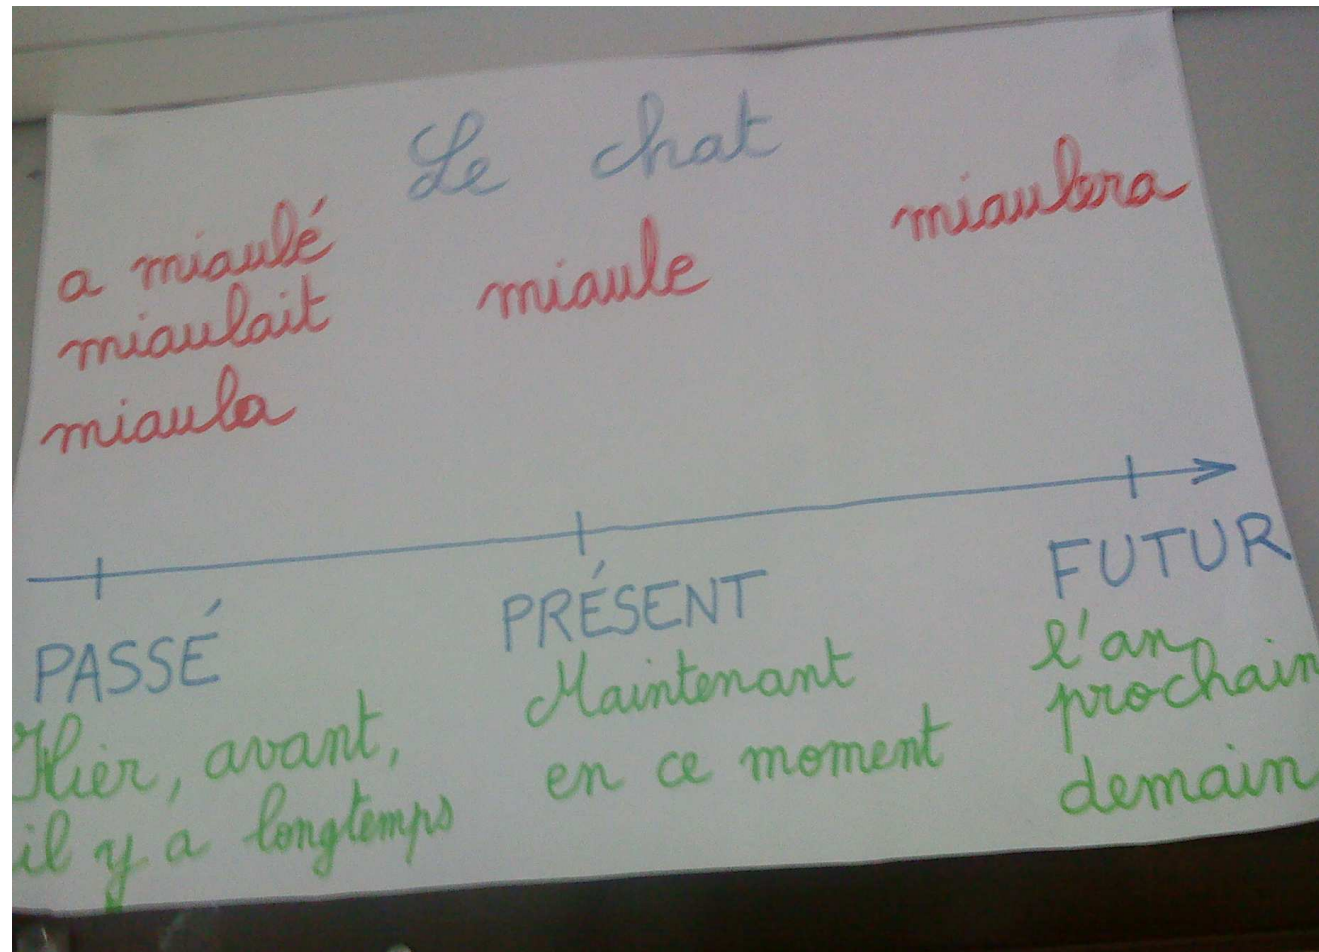 Le chat
a miaulé
miaulait
miaula
miaule
miaulera
PASSÉ
Hier, avant,
il y a longtemps
PRÉSENT
Maintenant
en ce moment
FUTUR
l'an
prochain
demain